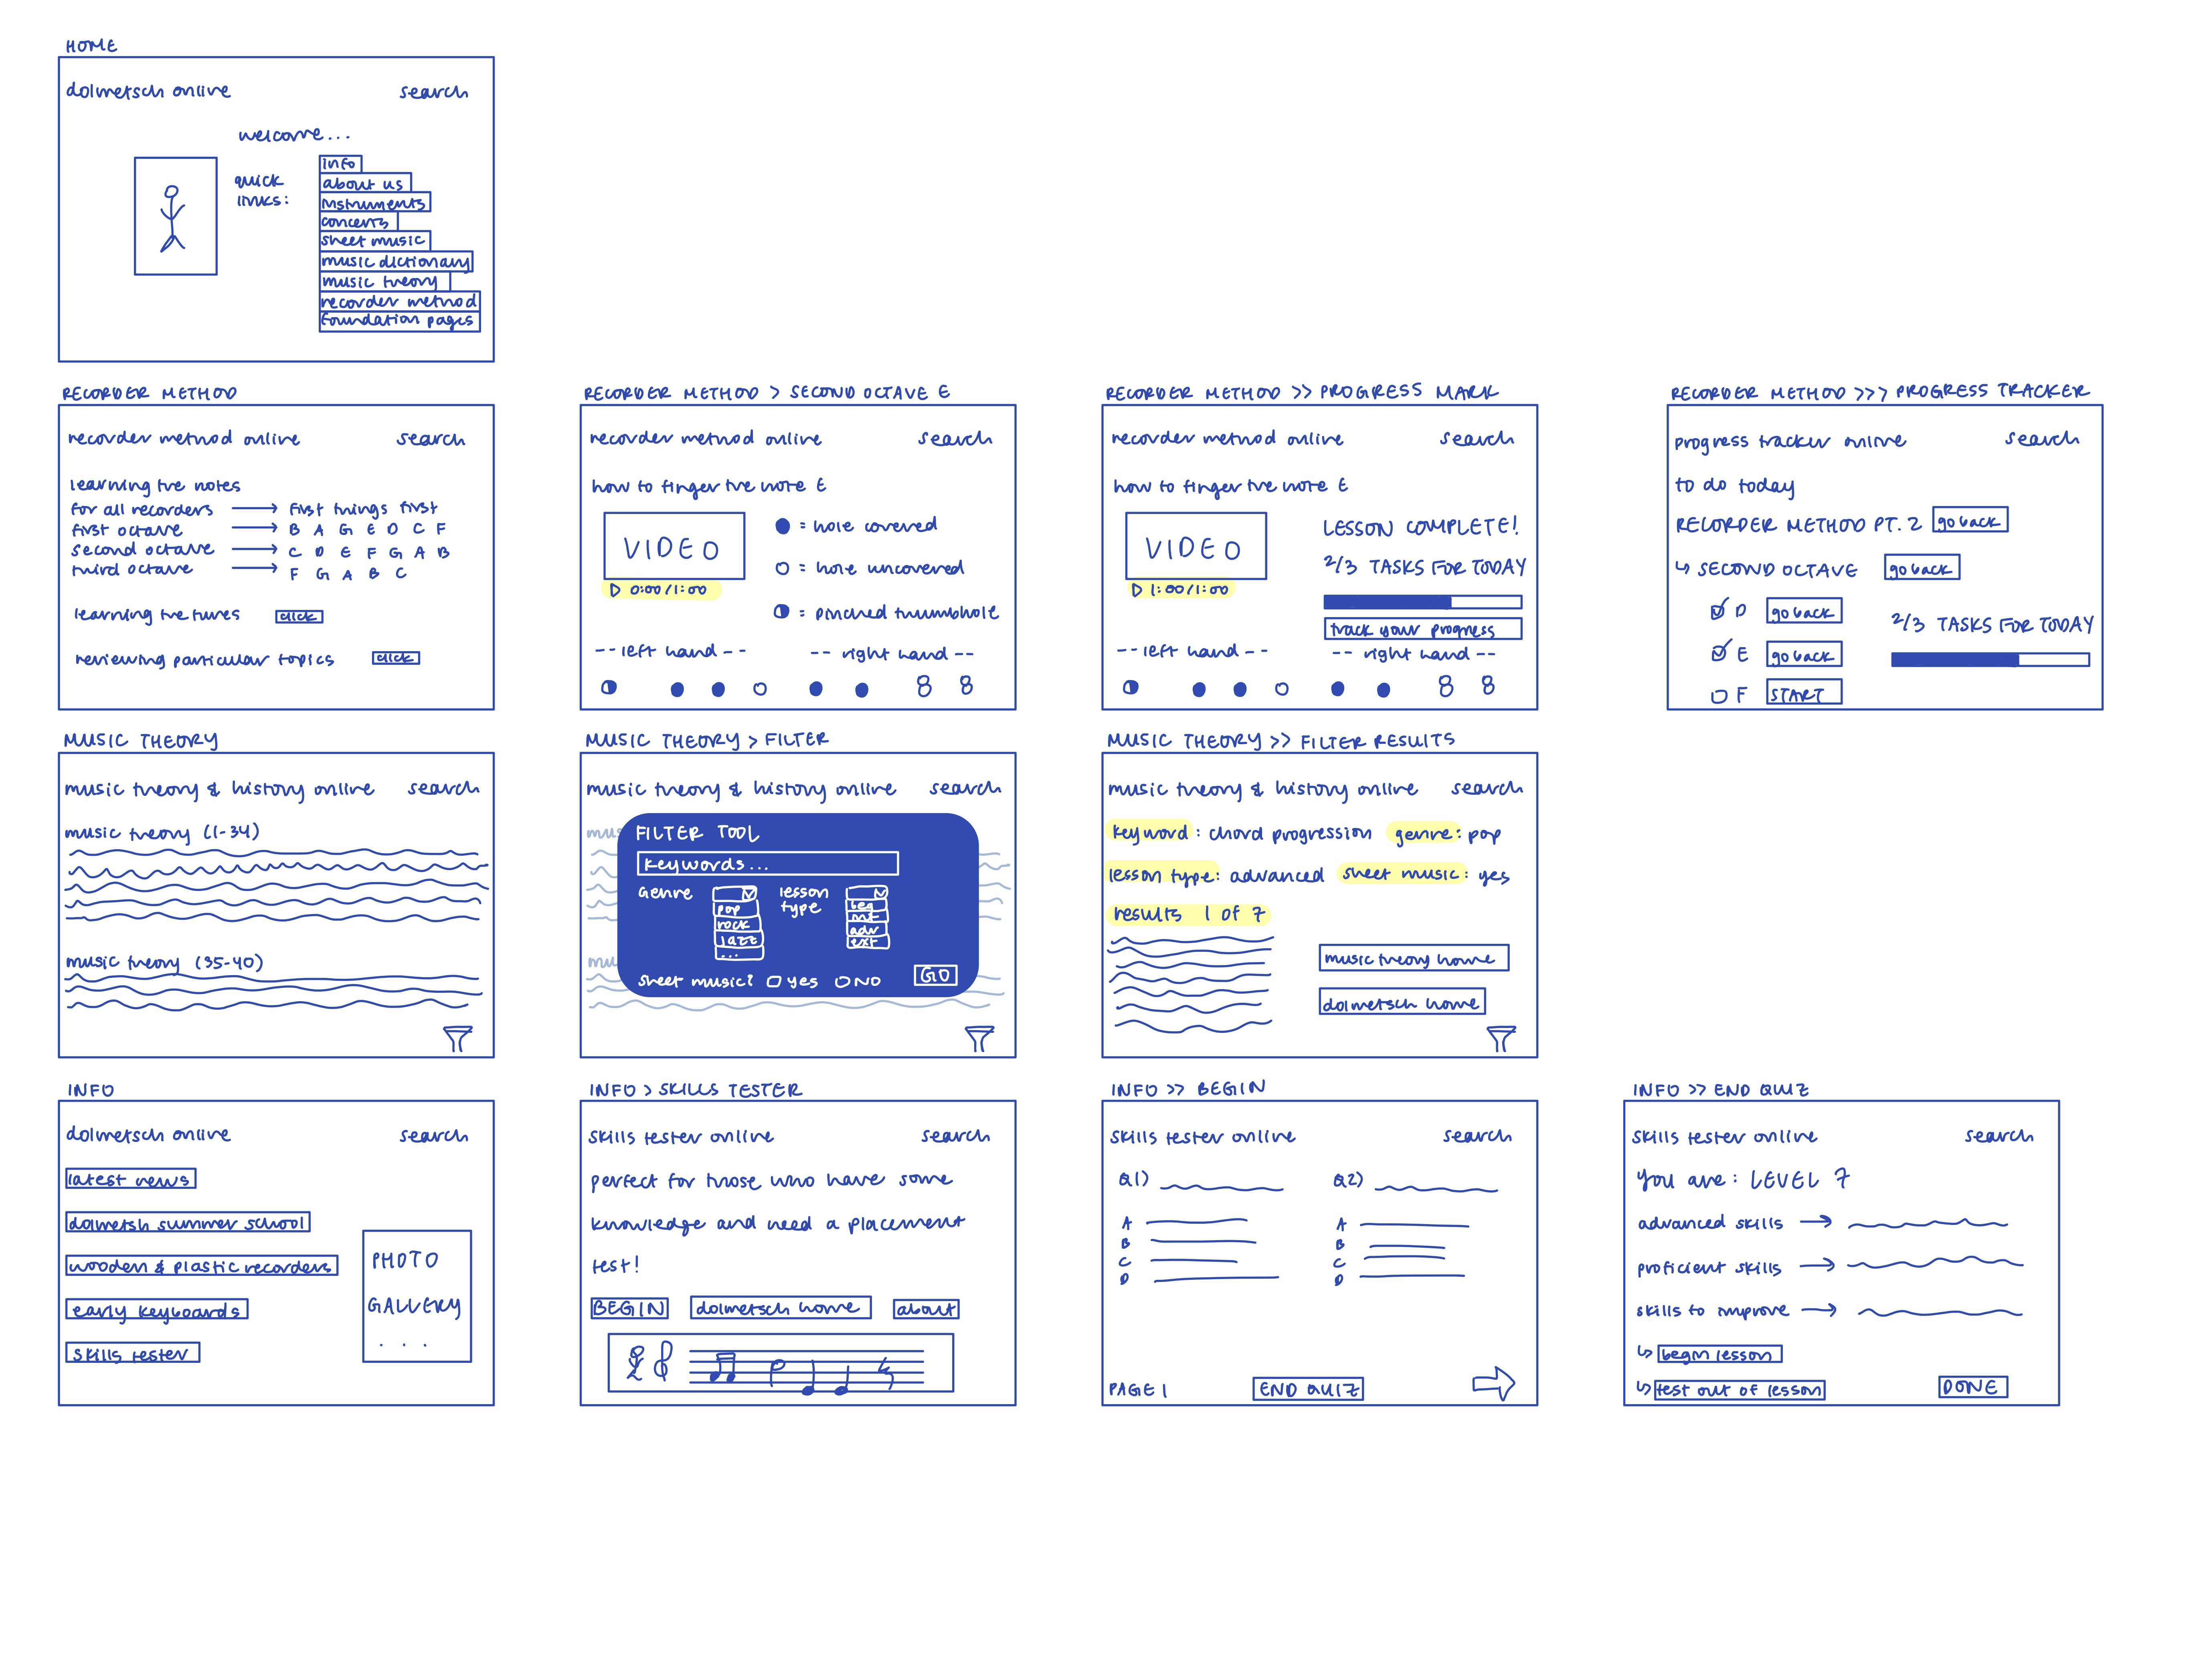 HOME
dolmetsch online search
welcome...
quick links:
info
about us
instruments
concerts
sheet music
music dictionary
music theory
recorder method
foundation pages
RECORDER METHOD
recorder method online search
learning the notes
for all recorders → first things first
first octave → B A G E D C F
second octave → C D E F G A B
third octave → F G A B C
learning the tunes click
reviewing particular topics click
RECORDER METHOD > SECOND OCTAVE E
recorder method online search
how to finger the note E
VIDEO
0:00/1:00
= hole covered
= hole uncovered
= pinched thumbhole
-- left hand -- -- right hand --
RECORDER METHOD >> PROGRESS MARK
recorder method online search
how to finger the note E
VIDEO
1:00/1:00
LESSON COMPLETE!
2/3 TASKS FOR TODAY
track your progress
-- left hand -- -- right hand --
RECORDER METHOD >>> PROGRESS TRACKER
progress tracker online search
to do today
RECORDER METHOD PT. 2 go back
↳ SECOND OCTAVE go back
D go back
E go back
F START
2/3 TASKS FOR TODAY
MUSIC THEORY
music theory & history online search
music theory (1-34)
music theory (35-40)
MUSIC THEORY > FILTER
music theory & history online search
mus
mu
FILTER TOOL
keywords...
Genre
pop
rock
jazz
...
lesson type
beg
int
adv
ext
sheet music? yes NO GO
MUSIC THEORY >> FILTER RESULTS
music theory & history online search
keyword: chord progression genre: pop
lesson type: advanced sheet music: yes
results 1 of 7
music theory home
dolmetsch home
INFO
dolmetsch online search
latest news
dolmetsh summer school
wooden & plastic recorders
early keyboards
skills tester
PHOTO
GALLERY
...
INFO > SKILLS TESTER
skills tester online search
perfect for those who have some
knowledge and need a placement
test!
BEGIN dolmetsch home about
INFO >> BEGIN
skills tester online search
Q1) Q2)
A A
B B
C C
D D
PAGE 1 END QUIZ
INFO >> END QUIZ
skills tester online search
you are: LEVEL 7
advanced skills →
proficient skills →
skills to improve →
↳ begin lesson
↳ test out of lesson DONE